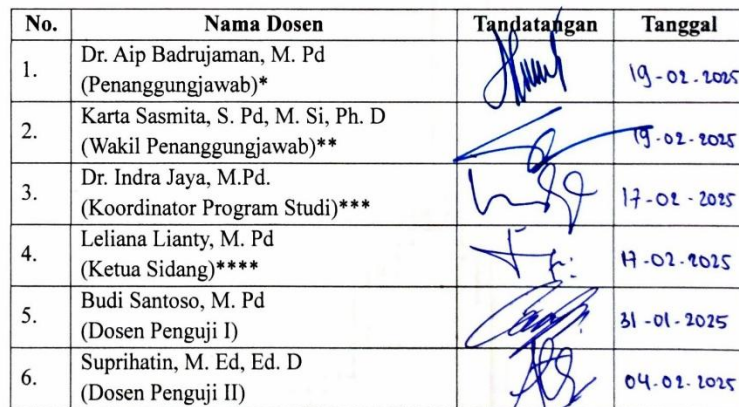 No. Nama Dosen Tandatangan Tanggal
1. Dr. Aip Badrujaman, M. Pd
(Penanggungjawab)* 19-02-2025
2. Karta Sasmita, S. Pd, M. Si, Ph. D
(Wakil Penanggungjawab)** 19-02-2025
3. Dr. Indra Jaya, M.Pd.
(Koordinator Program Studi)*** 17-02-2025
4. Leliana Lianty, M. Pd
(Ketua Sidang)**** 17-02-2025
5. Budi Santoso, M. Pd
(Dosen Penguji I) 31-01-2025
6. Suprihatin, M. Ed, Ed. D
(Dosen Penguji II) 04-02-2025